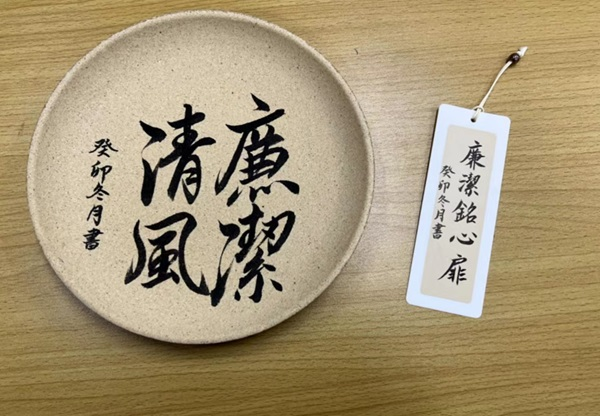 廉潔
清風
癸卯冬月書
廉潔銘心扉
癸卯冬月書